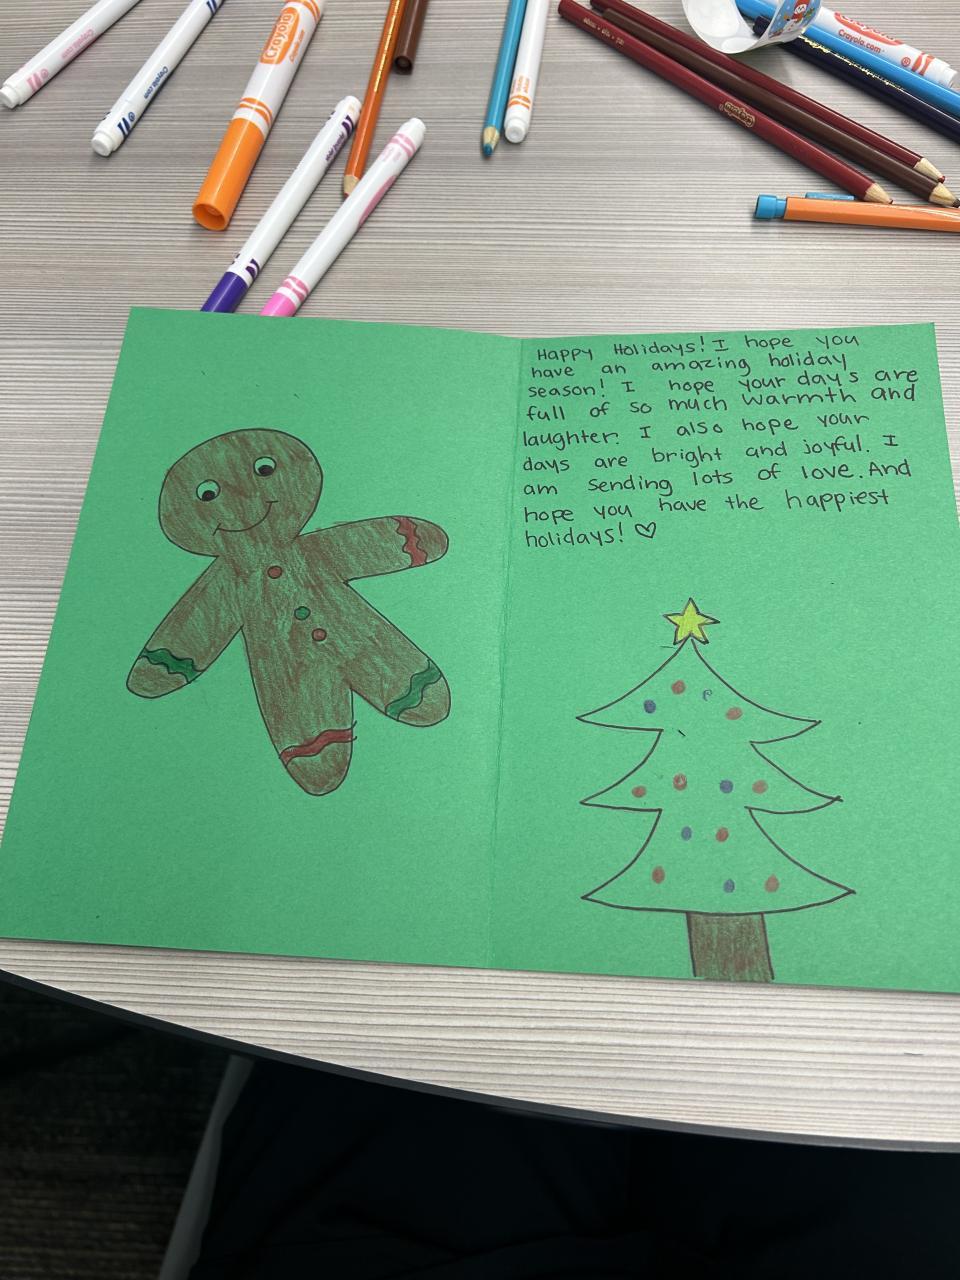 Crayola
Crayola.com
Crayola
Crayola.com
Happy Holidays! I hope you
have an amazing holiday
season! I hope your days are
full of so much warmth and
laughter. I also hope your
days are bright and joyful. I
am sending lots of love. And
hope you have the happiest
holidays! ♡